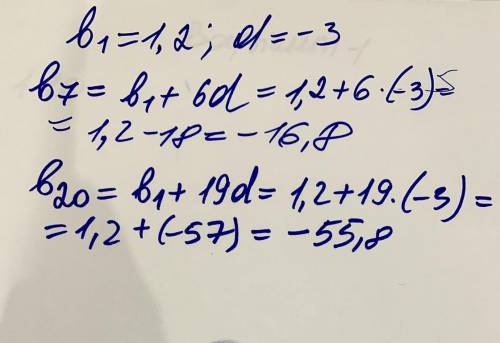 b₁ = 1,2 ; d = -3
b₇ = b₁ + 6d = 1,2 + 6 · (-3) =
= 1,2 - 18 = -16,8
b₂₀ = b₁ + 19d = 1,2 + 19 · (-3) =
= 1,2 + (-57) = -55,8